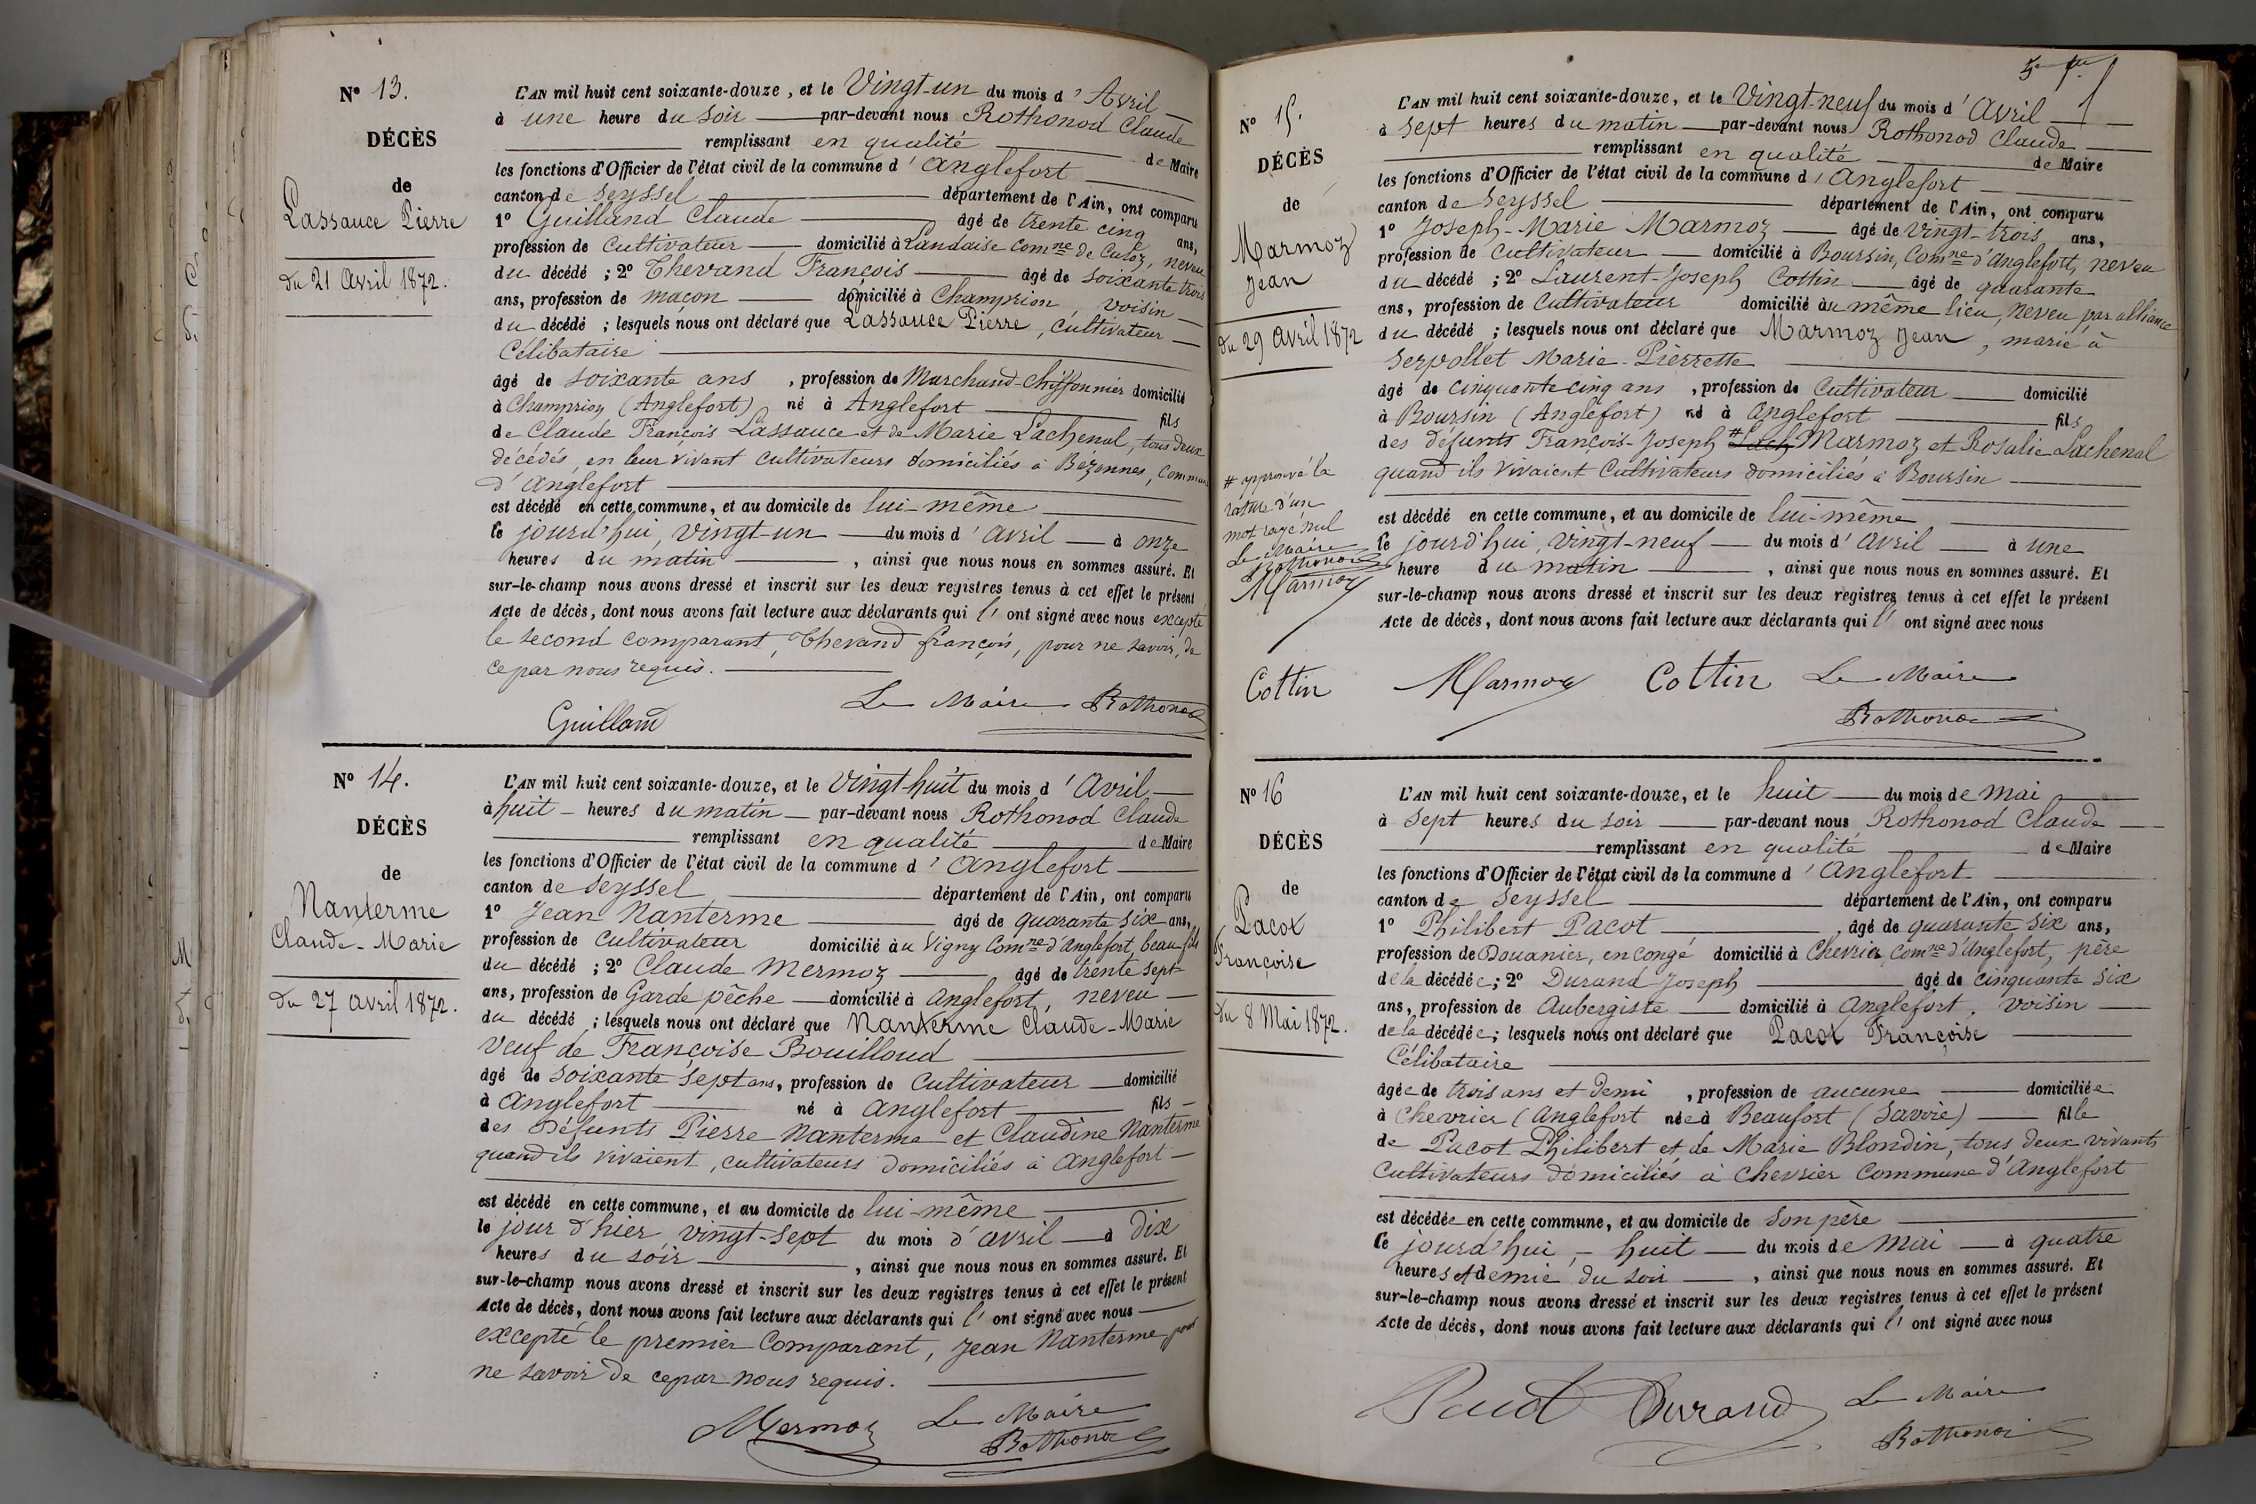 N° 13.
DÉCÈS
de
Lassauce Pierre
du 21 Avril 1872.
L'AN mil huit cent soixante-douze, et le Vingt-un du mois d'Avril
à une heure du soir par-devant nous Rothonod Claude
remplissant en qualité de Maire
les fonctions d'Officier de l'état civil de la commune d'Anglefort
canton de Seyssel département de l'Ain, ont comparu
1° Guilland Claude âgé de trente cinq ans,
profession de Cultivateur domicilié à Landaise Comne de Culoz, neveu
du décédé ; 2° Thevand François âgé de soixante trois
ans, profession de maçon domicilié à Champrion, voisin
du décédé ; lesquels nous ont déclaré que Lassauce Pierre, cultivateur
Célibataire
âgé de soixante ans, profession de Marchand-chiffonnier domicilié
à Champrion (Anglefort) né à Anglefort fils
de Claude François Lassauce et de Marie Lachenal, tous deux
décédés, en leur vivant cultivateurs domiciliés à Bézonnes, Commune
d'Anglefort
est décédé en cette commune, et au domicile de lui-même
le jourd'hui, vingt-un du mois d'avril à onze
heures du matin, ainsi que nous nous en sommes assuré. Et
sur-le-champ nous avons dressé et inscrit sur les deux registres tenus à cet effet le présent
Acte de décès, dont nous avons fait lecture aux déclarants qui l'ont signé avec nous excepté
le second comparant, Thevand françois, pour ne savoir, de
ce par nous requis.
Le Maire Rothonod
Guilland
N° 14.
DÉCÈS
de
Nanterme
Claude-Marie
du 27 avril 1872.
L'AN mil huit cent soixante-douze, et le Vingt-huit du mois d'Avril
à huit heures du matin par-devant nous Rothonod Claude
remplissant en qualité de Maire
les fonctions d'Officier de l'état civil de la commune d'Anglefort
canton de Seyssel département de l'Ain, ont comparu
1° Jean Nanterme âgé de quarante six ans,
profession de Cultivateur domicilié au Vigny Comne d'Anglefort, beau-fils
du décédé ; 2° Claude Mermoz âgé de trente sept
ans, profession de Garde pêche domicilié à Anglefort, neveu
du décédé ; lesquels nous ont déclaré que Nanterme Claude-Marie
Veuf de Françoise Bouilloud
âgé de soixante sept ans, profession de Cultivateur domicilié
à Anglefort né à Anglefort fils
des défunts Pierre Nanterme et Claudine Nanterme
quand ils vivaient, cultivateurs domiciliés à Anglefort
est décédé en cette commune, et au domicile de lui-même
le jour d'hier vingt-sept du mois d'avril à dix
heures du soir, ainsi que nous nous en sommes assuré. Et
sur-le-champ nous avons dressé et inscrit sur les deux registres tenus à cet effet le présent
Acte de décès, dont nous avons fait lecture aux déclarants qui l'ont signé avec nous
excepté le premier Comparant, Jean Nanterme pour
ne savoir de ce par nous requis.
Mermoz Le Maire
Rothonod
N° 15.
DÉCÈS
de
Marmoz
Jean
du 29 avril 1872
# approuvé la
rature d'un
mot rayé nul
Le Maire
Rothonod
Marmoz
Cottin
L'AN mil huit cent soixante-douze, et le Vingt-neuf du mois d'Avril
à sept heures du matin par-devant nous Rothonod Claude
remplissant en qualité de Maire
les fonctions d'Officier de l'état civil de la commune d'Anglefort
canton de Seyssel département de l'Ain, ont comparu
1° Joseph-Marie Marmoz âgé de vingt-trois ans,
profession de Cultivateur domicilié à Boursin, Comne d'Anglefort, neveu
du décédé ; 2° Laurent-Joseph Cottin âgé de quarante
ans, profession de Cultivateur domicilié au même lieu, neveu par alliance
du décédé ; lesquels nous ont déclaré que Marmoz Jean, marié à
Serpollet Marie-Pierrette
âgé de Cinquante cinq ans, profession de Cultivateur domicilié
à Boursin (Anglefort) né à Anglefort fils
des défunts François-Joseph # Lach Marmoz et Rosalie Lachenal
quand ils vivaient Cultivateurs domiciliés à Boursin
est décédé en cette commune, et au domicile de lui-même
le jourd'hui, vingt-neuf du mois d'Avril à une
heure du matin, ainsi que nous nous en sommes assuré. Et
sur-le-champ nous avons dressé et inscrit sur les deux registres tenus à cet effet le présent
Acte de décès, dont nous avons fait lecture aux déclarants qui l'ont signé avec nous
Marmoz Cottin Le Maire
Rothonod
N° 16
DÉCÈS
de
Pacot
Françoise
du 8 Mai 1872.
L'AN mil huit cent soixante-douze, et le huit du mois de Mai
à sept heures du soir par-devant nous Rothonod Claude
remplissant en qualité de Maire
les fonctions d'Officier de l'état civil de la commune d'Anglefort
canton de Seyssel département de l'Ain, ont comparu
1° Philibert Pacot, âgé de quarante six ans,
profession de Douanier, en congé domicilié à Chevrier, Comne d'Anglefort, père
de la décédée ; 2° Durand Joseph âgé de cinquante six
ans, profession de Aubergiste domicilié à Anglefort, voisin
de la décédée ; lesquels nous ont déclaré que Pacot Françoise
Célibataire
âgée de trois ans et demi, profession de aucune domiciliée
à Chevrier (Anglefort née à Beaufort (Savoie) fille
de Pacot Philibert et de Marie Blondin, tous deux vivants
Cultivateurs domiciliés à Chevrier Commune d'Anglefort
est décédée en cette commune, et au domicile de son père
le jourd'hui, huit du mois de Mai à quatre
heures et demie du soir, ainsi que nous nous en sommes assuré. Et
sur-le-champ nous avons dressé et inscrit sur les deux registres tenus à cet effet le présent
Acte de décès, dont nous avons fait lecture aux déclarants qui l'ont signé avec nous
Pacot Durand Le Maire
Rothonod